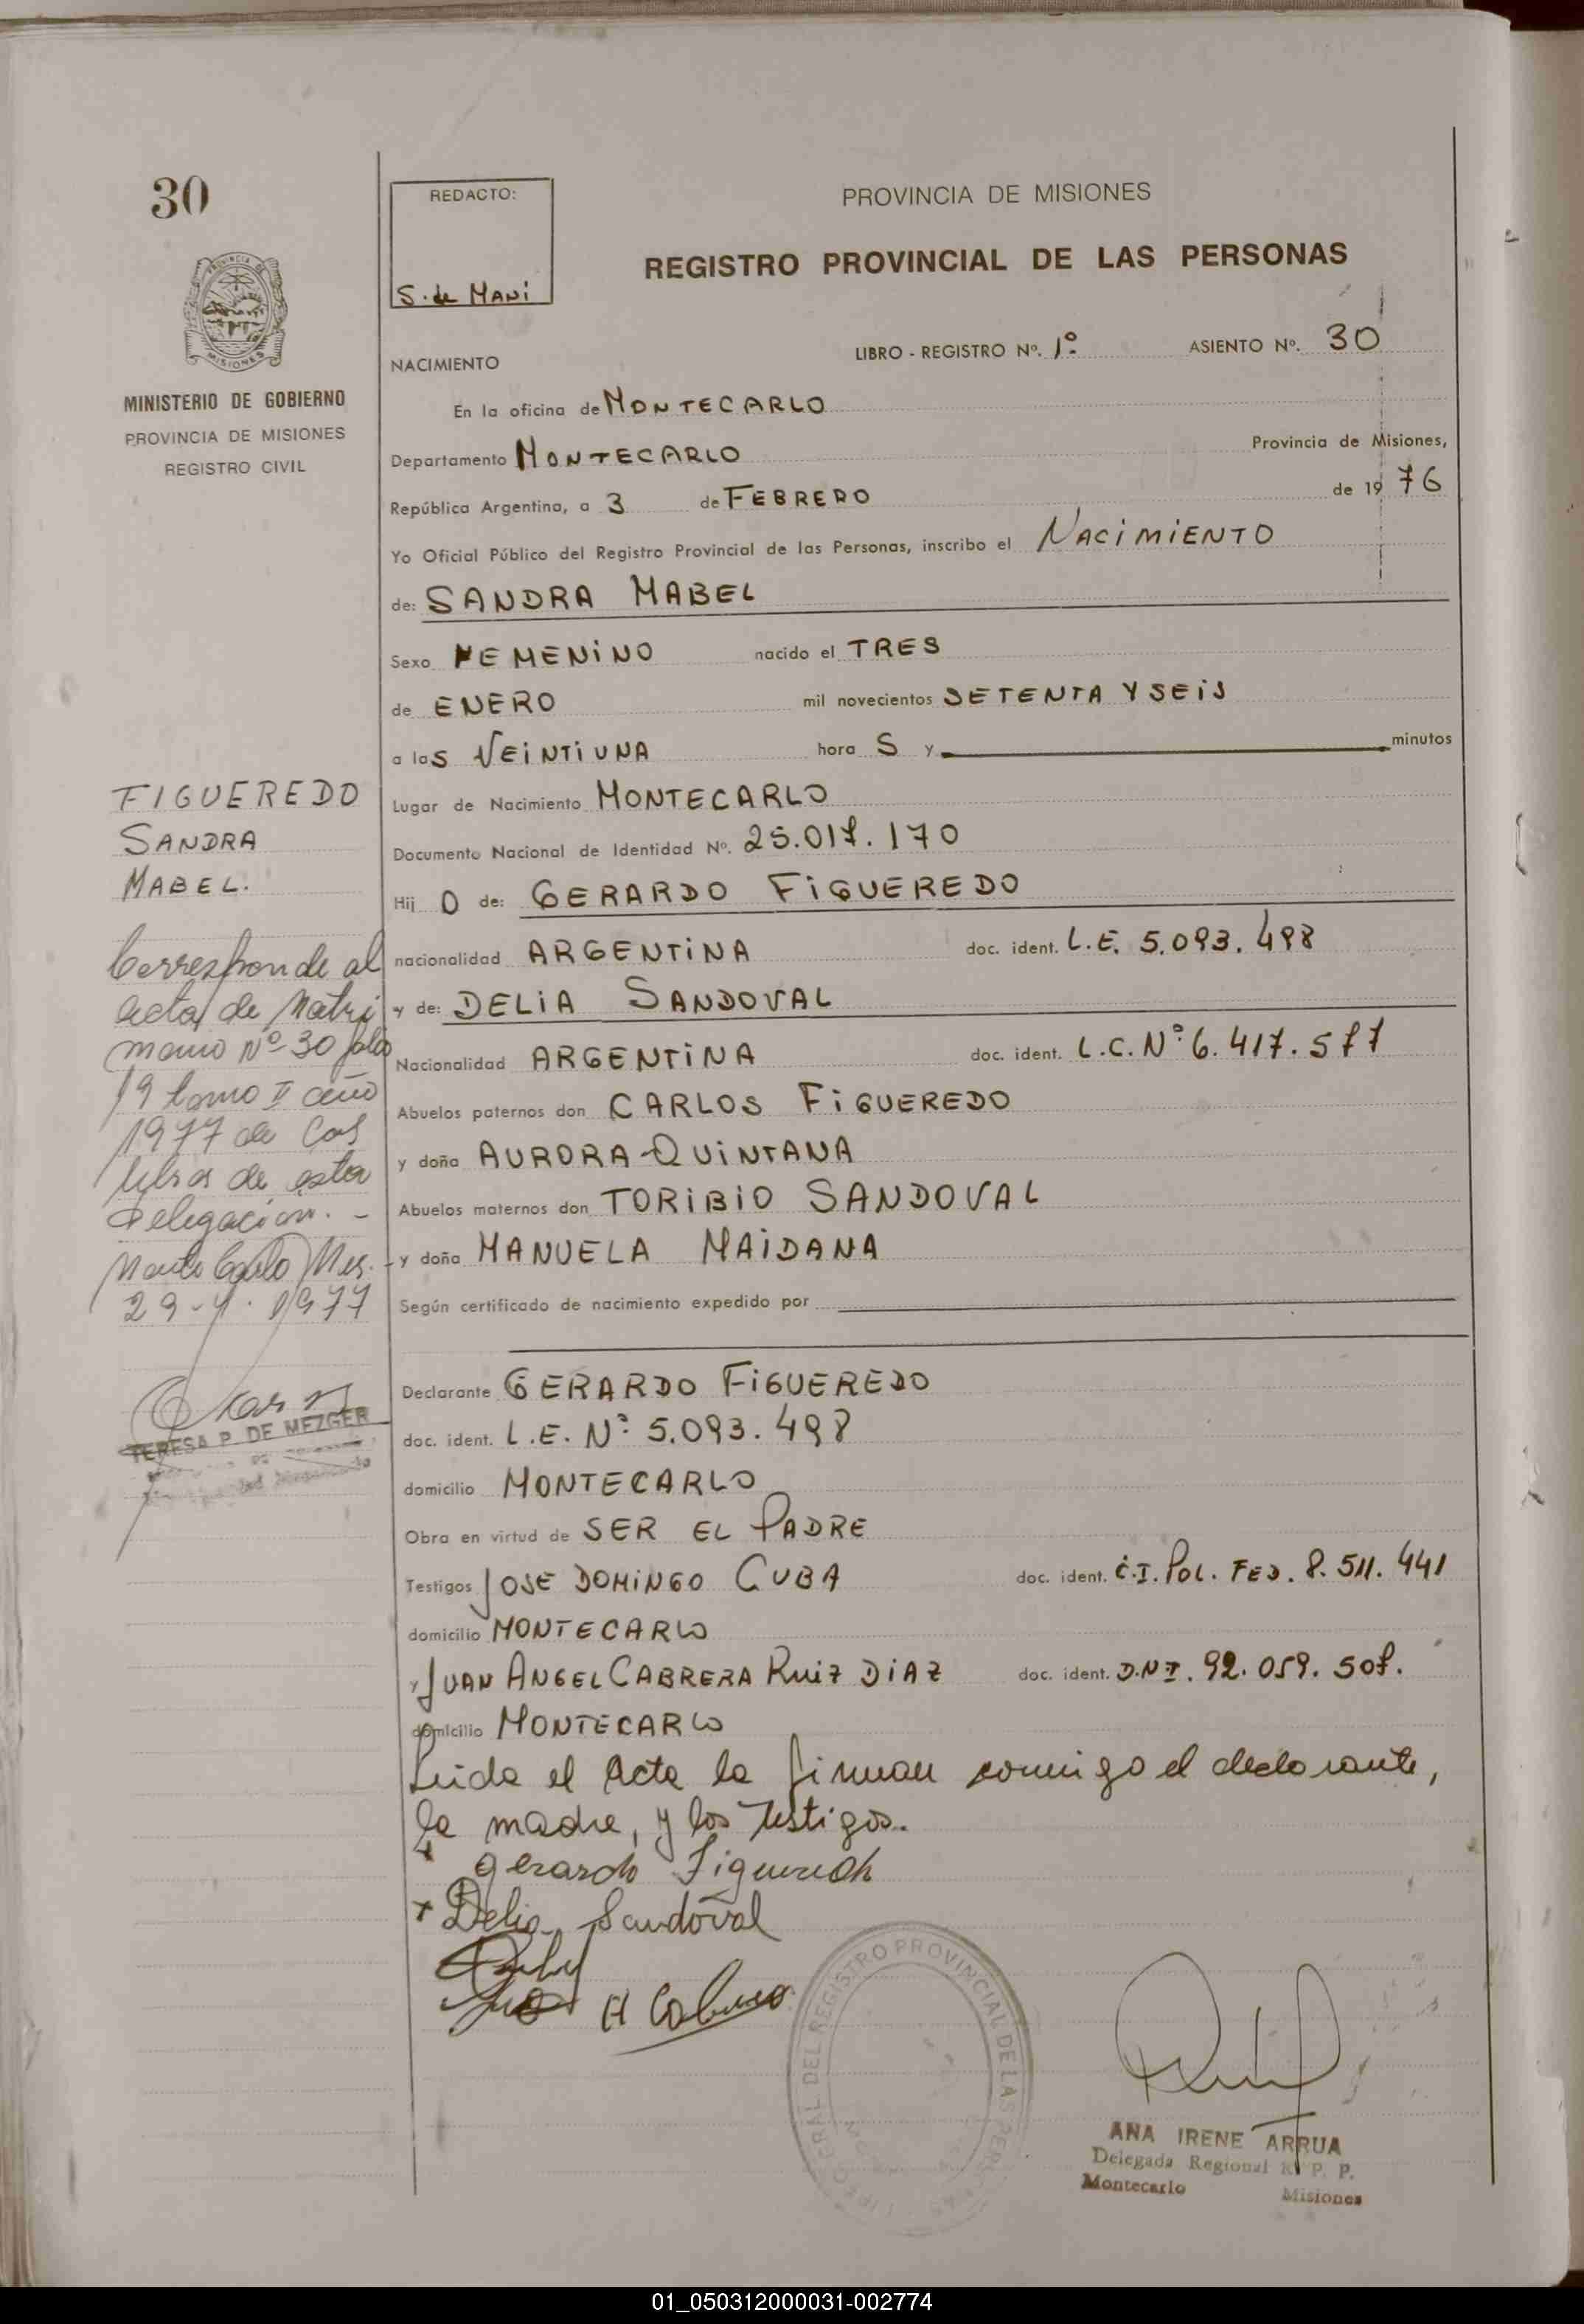 30
REDACTO:
S. de MANI
PROVINCIA DE MISIONES
REGISTRO PROVINCIAL DE LAS PERSONAS
MINISTERIO DE GOBIERNO
PROVINCIA DE MISIONES
REGISTRO CIVIL
NACIMIENTO
LIBRO - REGISTRO Nº. 1º ASIENTO Nº. 30
En la oficina de MONTECARLO
Departamento MONTECARLO Provincia de Misiones,
República Argentina, a 3 de FEBRERO de 1976
Yo Oficial Público del Registro Provincial de las Personas, inscribo el NACIMIENTO
de: SANDRA MABEL
Sexo FEMENINO nacido el TRES
de ENERO mil novecientos SETENTA Y SEIS
a las VEINTIUNA hora S y minutos
Lugar de Nacimiento MONTECARLO
Documento Nacional de Identidad Nº. 25.017.170
Hij O de: GERARDO FIGUEREDO
nacionalidad ARGENTINA doc. ident. L.E. 5.093.498
y de: DELIA SANDOVAL
Nacionalidad ARGENTINA doc. ident. L.C. Nº 6.417.577
Abuelos paternos don CARLOS FIGUEREDO
y doña AURORA QUINTANA
Abuelos maternos don TORIBIO SANDOVAL
y doña MANUELA MAIDANA
Según certificado de nacimiento expedido por
FIGUEREDO
SANDRA
MABEL.
Corresponde al
acta de Matri
monio Nº 30 folio
19 tomo II año
1977 de los
libros de esta
Delegación. -
Monte Carlo Mes.
TERESA P. DE MEZGER
Declarante GERARDO FIGUEREDO
doc. ident. L.E. Nº 5.093.498
domicilio MONTECARLO
Obra en virtud de SER EL PADRE
Testigos JOSE DOMINGO CUBA doc. ident. C.I. POL. FED. 8.511.441
domicilio MONTECARLO
y JUAN ANGEL CABRERA RUIZ DIAZ doc. ident. D.N.I. 92.059.507.
domicilio MONTECARLO
Leida el Acta la firman conmigo el declarante,
la madre, y los testigos.
Gerardo Figueredo
Delia Sandoval
A Cabrera
REGISTRO PROVINCIAL DE LAS PERSONAS
ANA IRENE ARRUA
Delegada Regional R. P. P.
Montecarlo Misiones
01_050312000031-002774